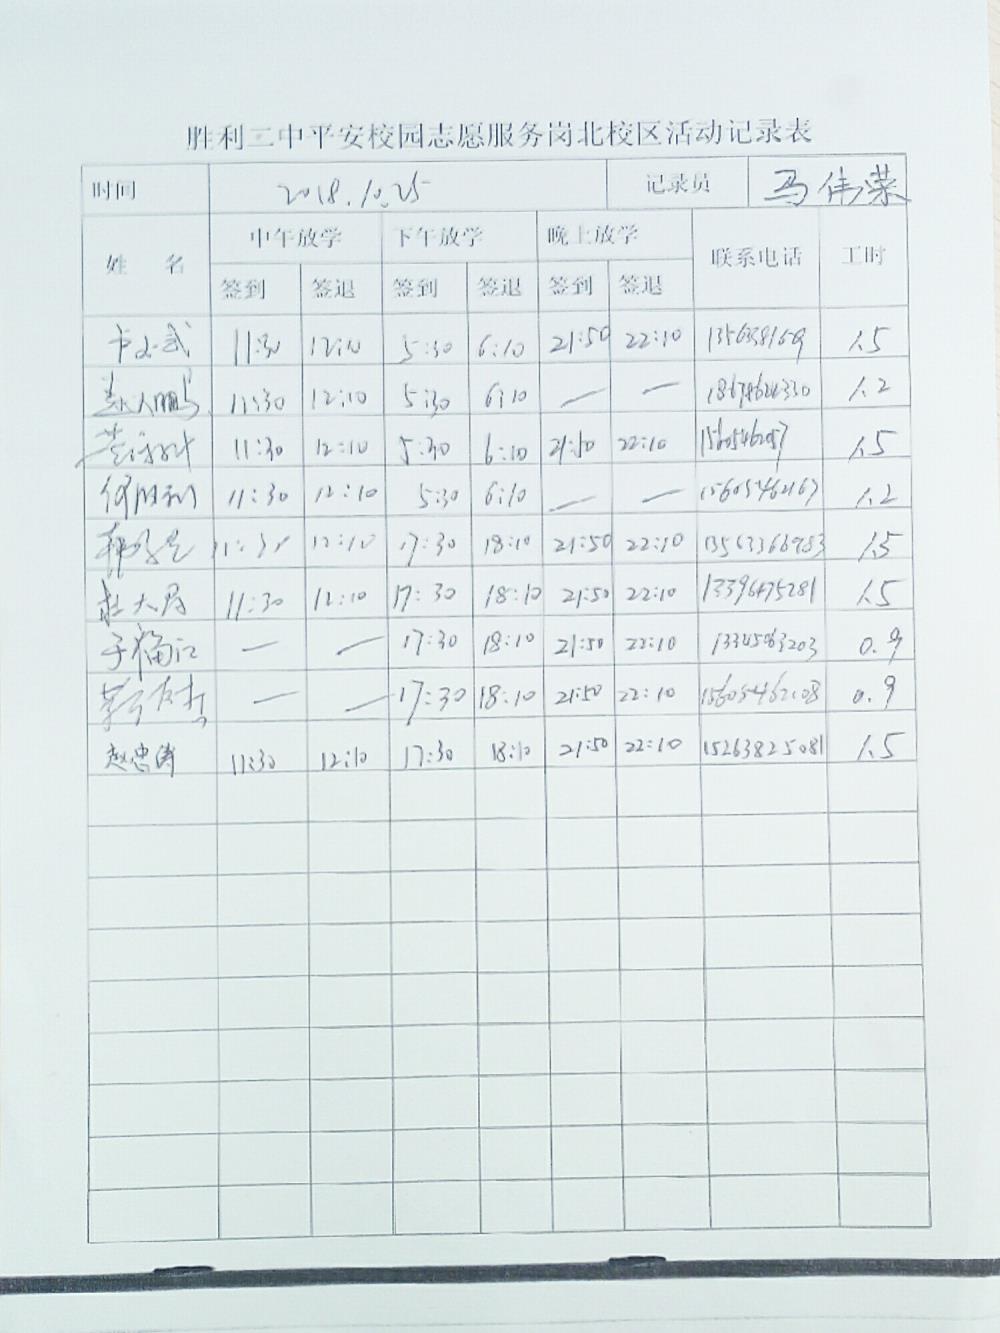 胜利二中平安校园志愿服务岗北校区活动记录表
时间 2018.10.25 记录员 马伟荣
姓 名 中午放学 下午放学 晚上放学 联系电话 工时
签到 签退 签到 签退 签到 签退
11:30 12:10 5:30 6:10 21:50 22:10 1.5
姜大鹏 11:30 12:10 5:30 6:10 — — 18678624330 1.2
11:30 12:10 5:30 6:10 21:50 22:10 1.5
何胜利 11:30 12:10 5:30 6:10 — — 15605462167 1.2
11:30 12:10 17:30 18:10 21:50 22:10 13563366983 1.5
杜大为 11:30 12:10 17:30 18:10 21:50 22:10 13396475281 1.5
于福江 — — 17:30 18:10 21:50 22:10 13345063203 0.9
— — 17:30 18:10 21:50 22:10 15605462108 0.9
赵忠涛 11:30 12:10 17:30 18:10 21:50 22:10 15263825081 1.5